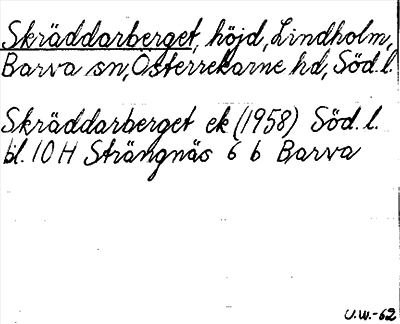 Skräddarberget, höjd, Lindholm,
Barva sn, Österrekarne hd, Söd. l.
Skräddarberget ek (1958) Söd. l.
bl. 10 H Strängnäs 6 b Barva
U.W.-62